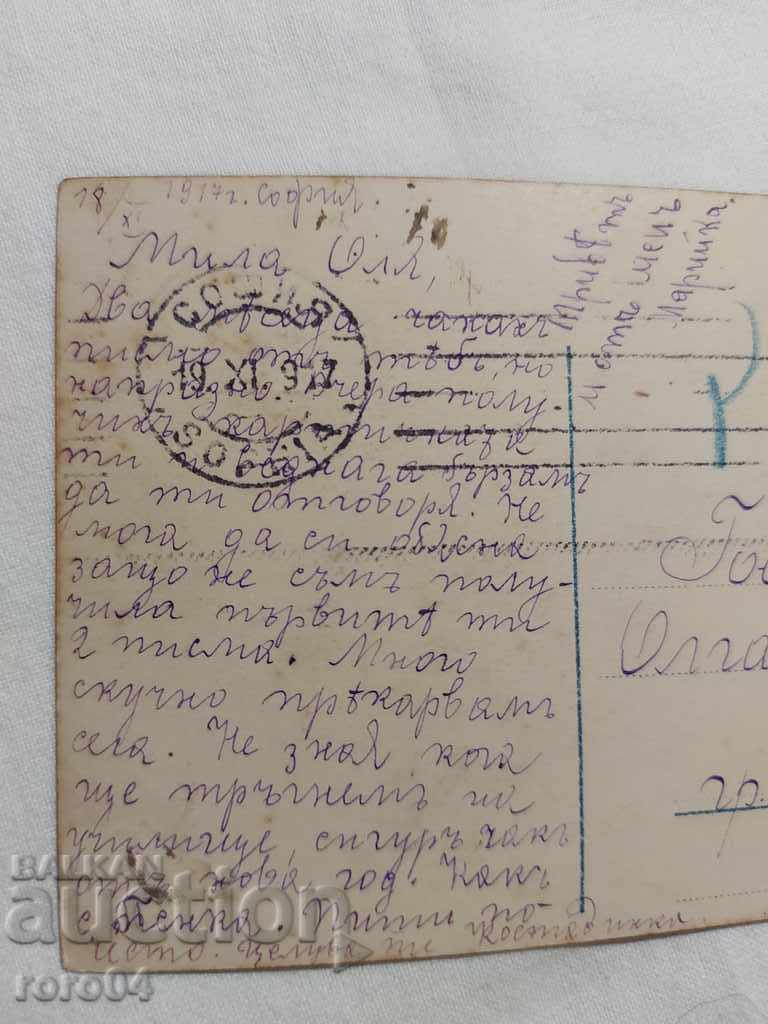 18/XI 1917 г. София.
Мила Оля,
Два мѣсеца чакахъ
писмо отъ тѣбъ, но
напразно. Вчера полу-
чихъ картичката
ти и веднага бързамъ
да ти отговоря. Не
мога да си обясня
защо не съмъ полу-
чила първитѣ ти
2 писма. Много
скучно прѣкарвамъ
сега. Не зная кога
ще тръгнемъ на
училище, сигуръ чакъ
отъ нова год. Какъ
е Пенка. Пиши по-
често. Целува те Костадинка
Привѣтъ
и отъ менъ
Марийка
СОФИЯ
19.XI.917
SOFIA
Р
Гос
Олга
гр.
BALKAN
auction
roro04